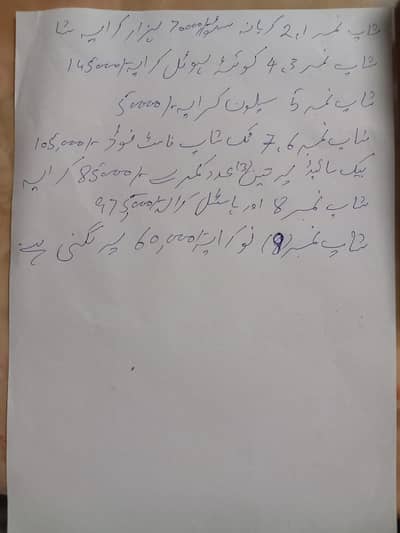 شاپ نمبر 1,2 کریانہ سٹور 70000/- ہزار کرایہ
شاپ نمبر 3,4 کوئٹہ ہوٹل کرایہ 145000/-
شاپ نمبر 5 سیلون کرایہ 50000/-
شاپ نمبر 6,7 تک شاپ فاسٹ فوڈ 105,000/-
بیک سائیڈ پر تین (3) عدد کمرے 85000/- کرایہ
شاپ نمبر 8 اور ہاسٹل کرایہ 975,000/-
شاپ نمبر (9) نو کرایہ 60,000/- پر لگنی ہے